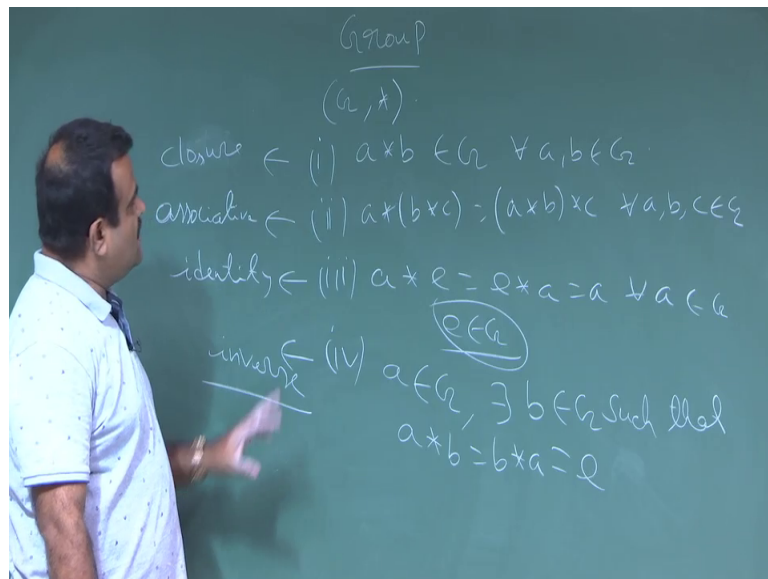 Group
(G, *)
closure ← (i) a*b ∈ G ∀ a, b ∈ G
associative ← (ii) a*(b*c) = (a*b)*c ∀ a, b, c ∈ G
identity ← (iii) a * e = e * a = a ∀ a ∈ G
e ∈ G
inverse ← (iv) a ∈ G, ∃ b ∈ G such that
a * b = b * a = e